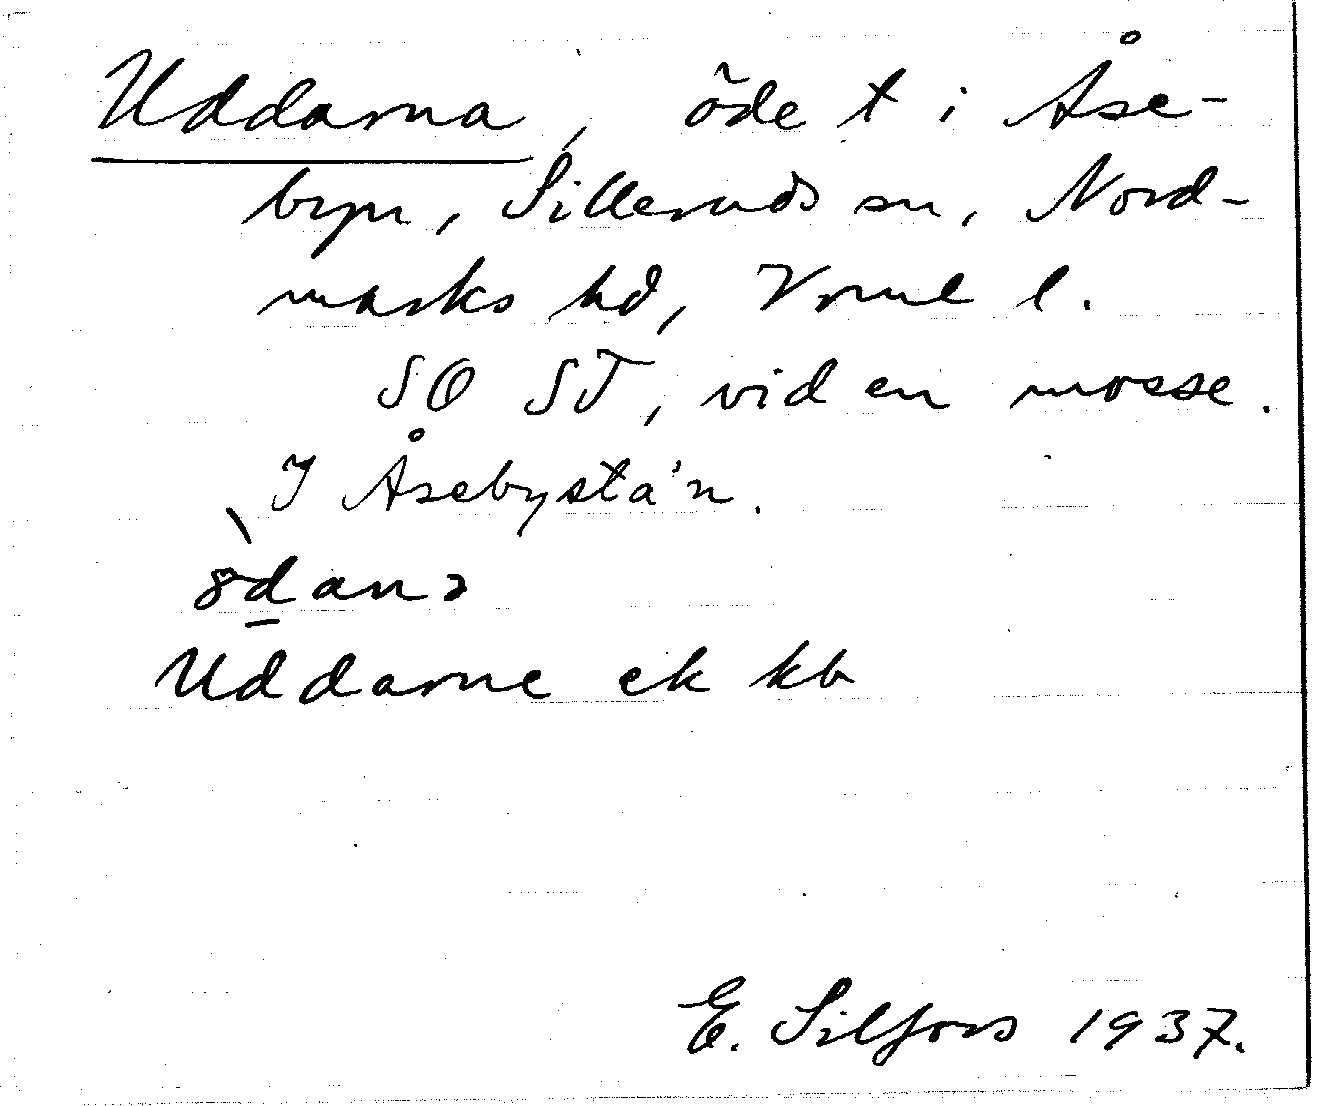 Uddarna, öde t i Åse-
byn, Silleruds sn, Nord-
marks hd, Vrml l.
SO ST, vid en mosse.
I Åsebysta'n.
Uddarne ek kb
E. Silfors 1937.